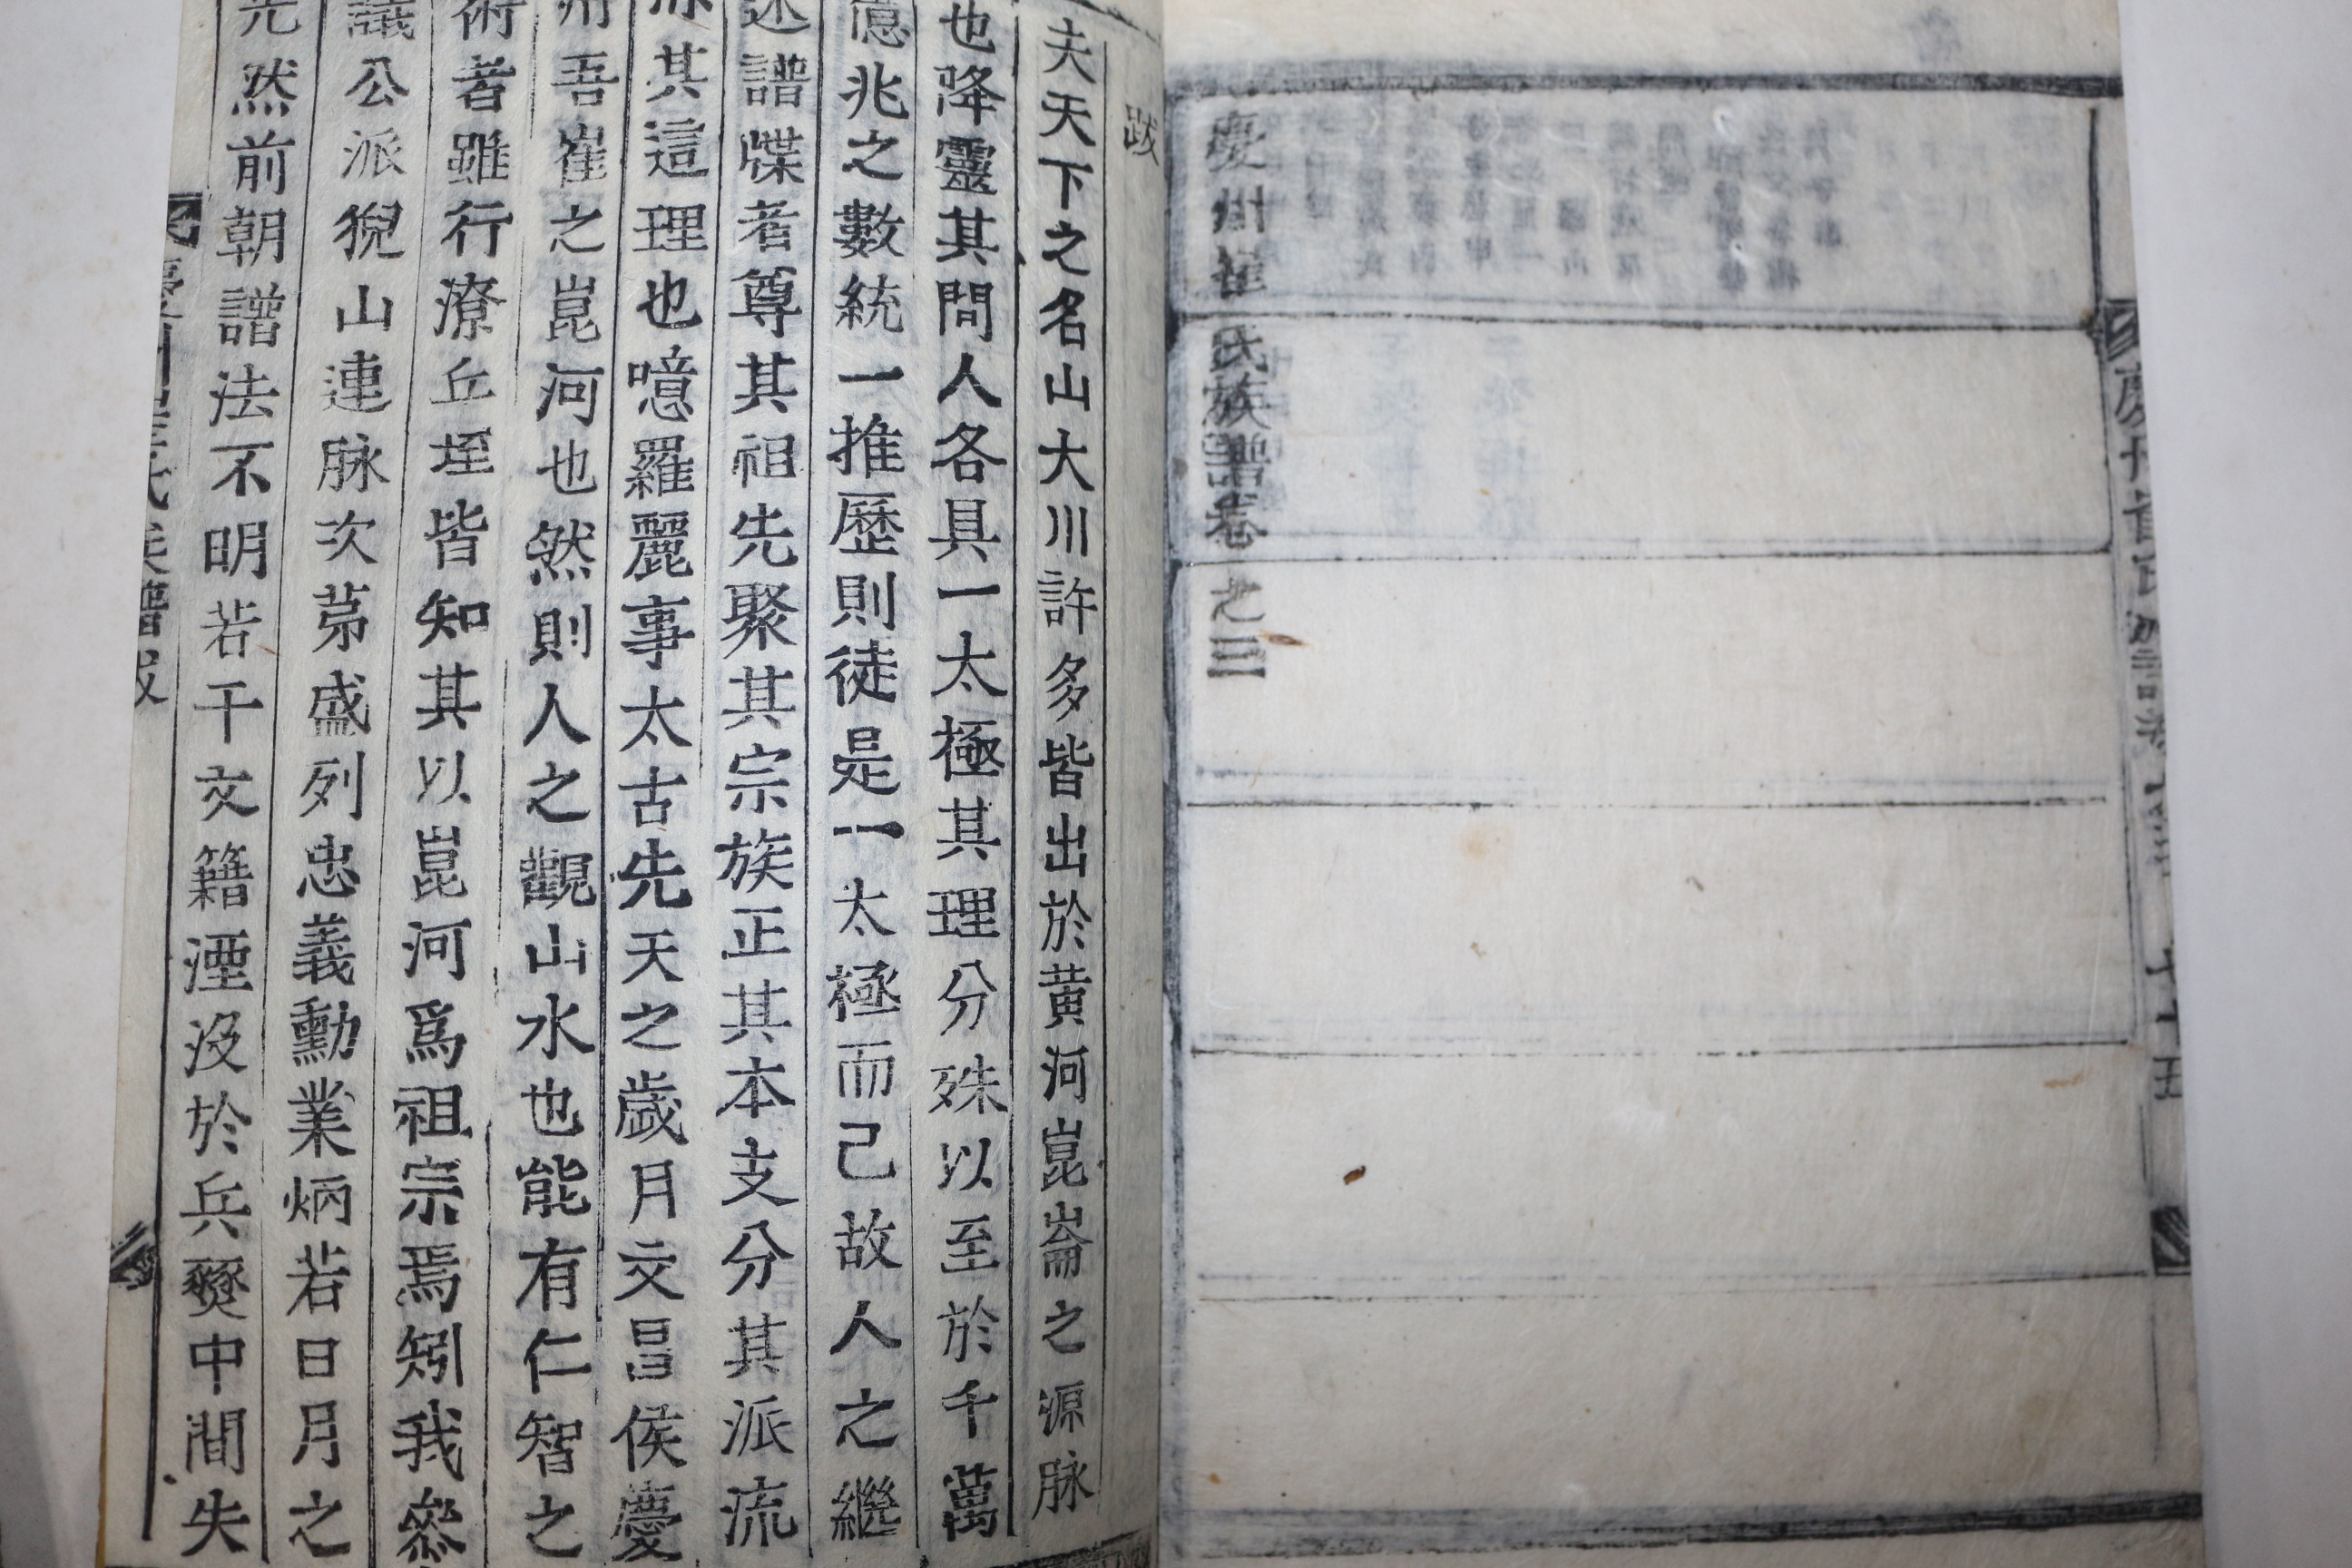 慶州崔氏族譜卷之三
跋
夫天下之名山大川許多皆出於黃河崑崙之源脉
也降靈其間人各具一太極其理分殊以至於千萬
億兆之數統一推歷則徒是一太極而己故人之繼
述譜牒者尊其祖先聚其宗族正其本支分其派流
其這理也噫羅麗事太古先天之歲月文昌侯慶
州吾崔之崑河也然則人之觀山水也能有仁智之
術者雖行潦丘垤皆知其以崑河爲祖宗焉矧我叅
議公派猊山連脉次苐盛列忠義勳業炳若日月之
光然前朝譜法不明若干文籍湮沒於兵燹中間失
慶州崔氏族譜跋